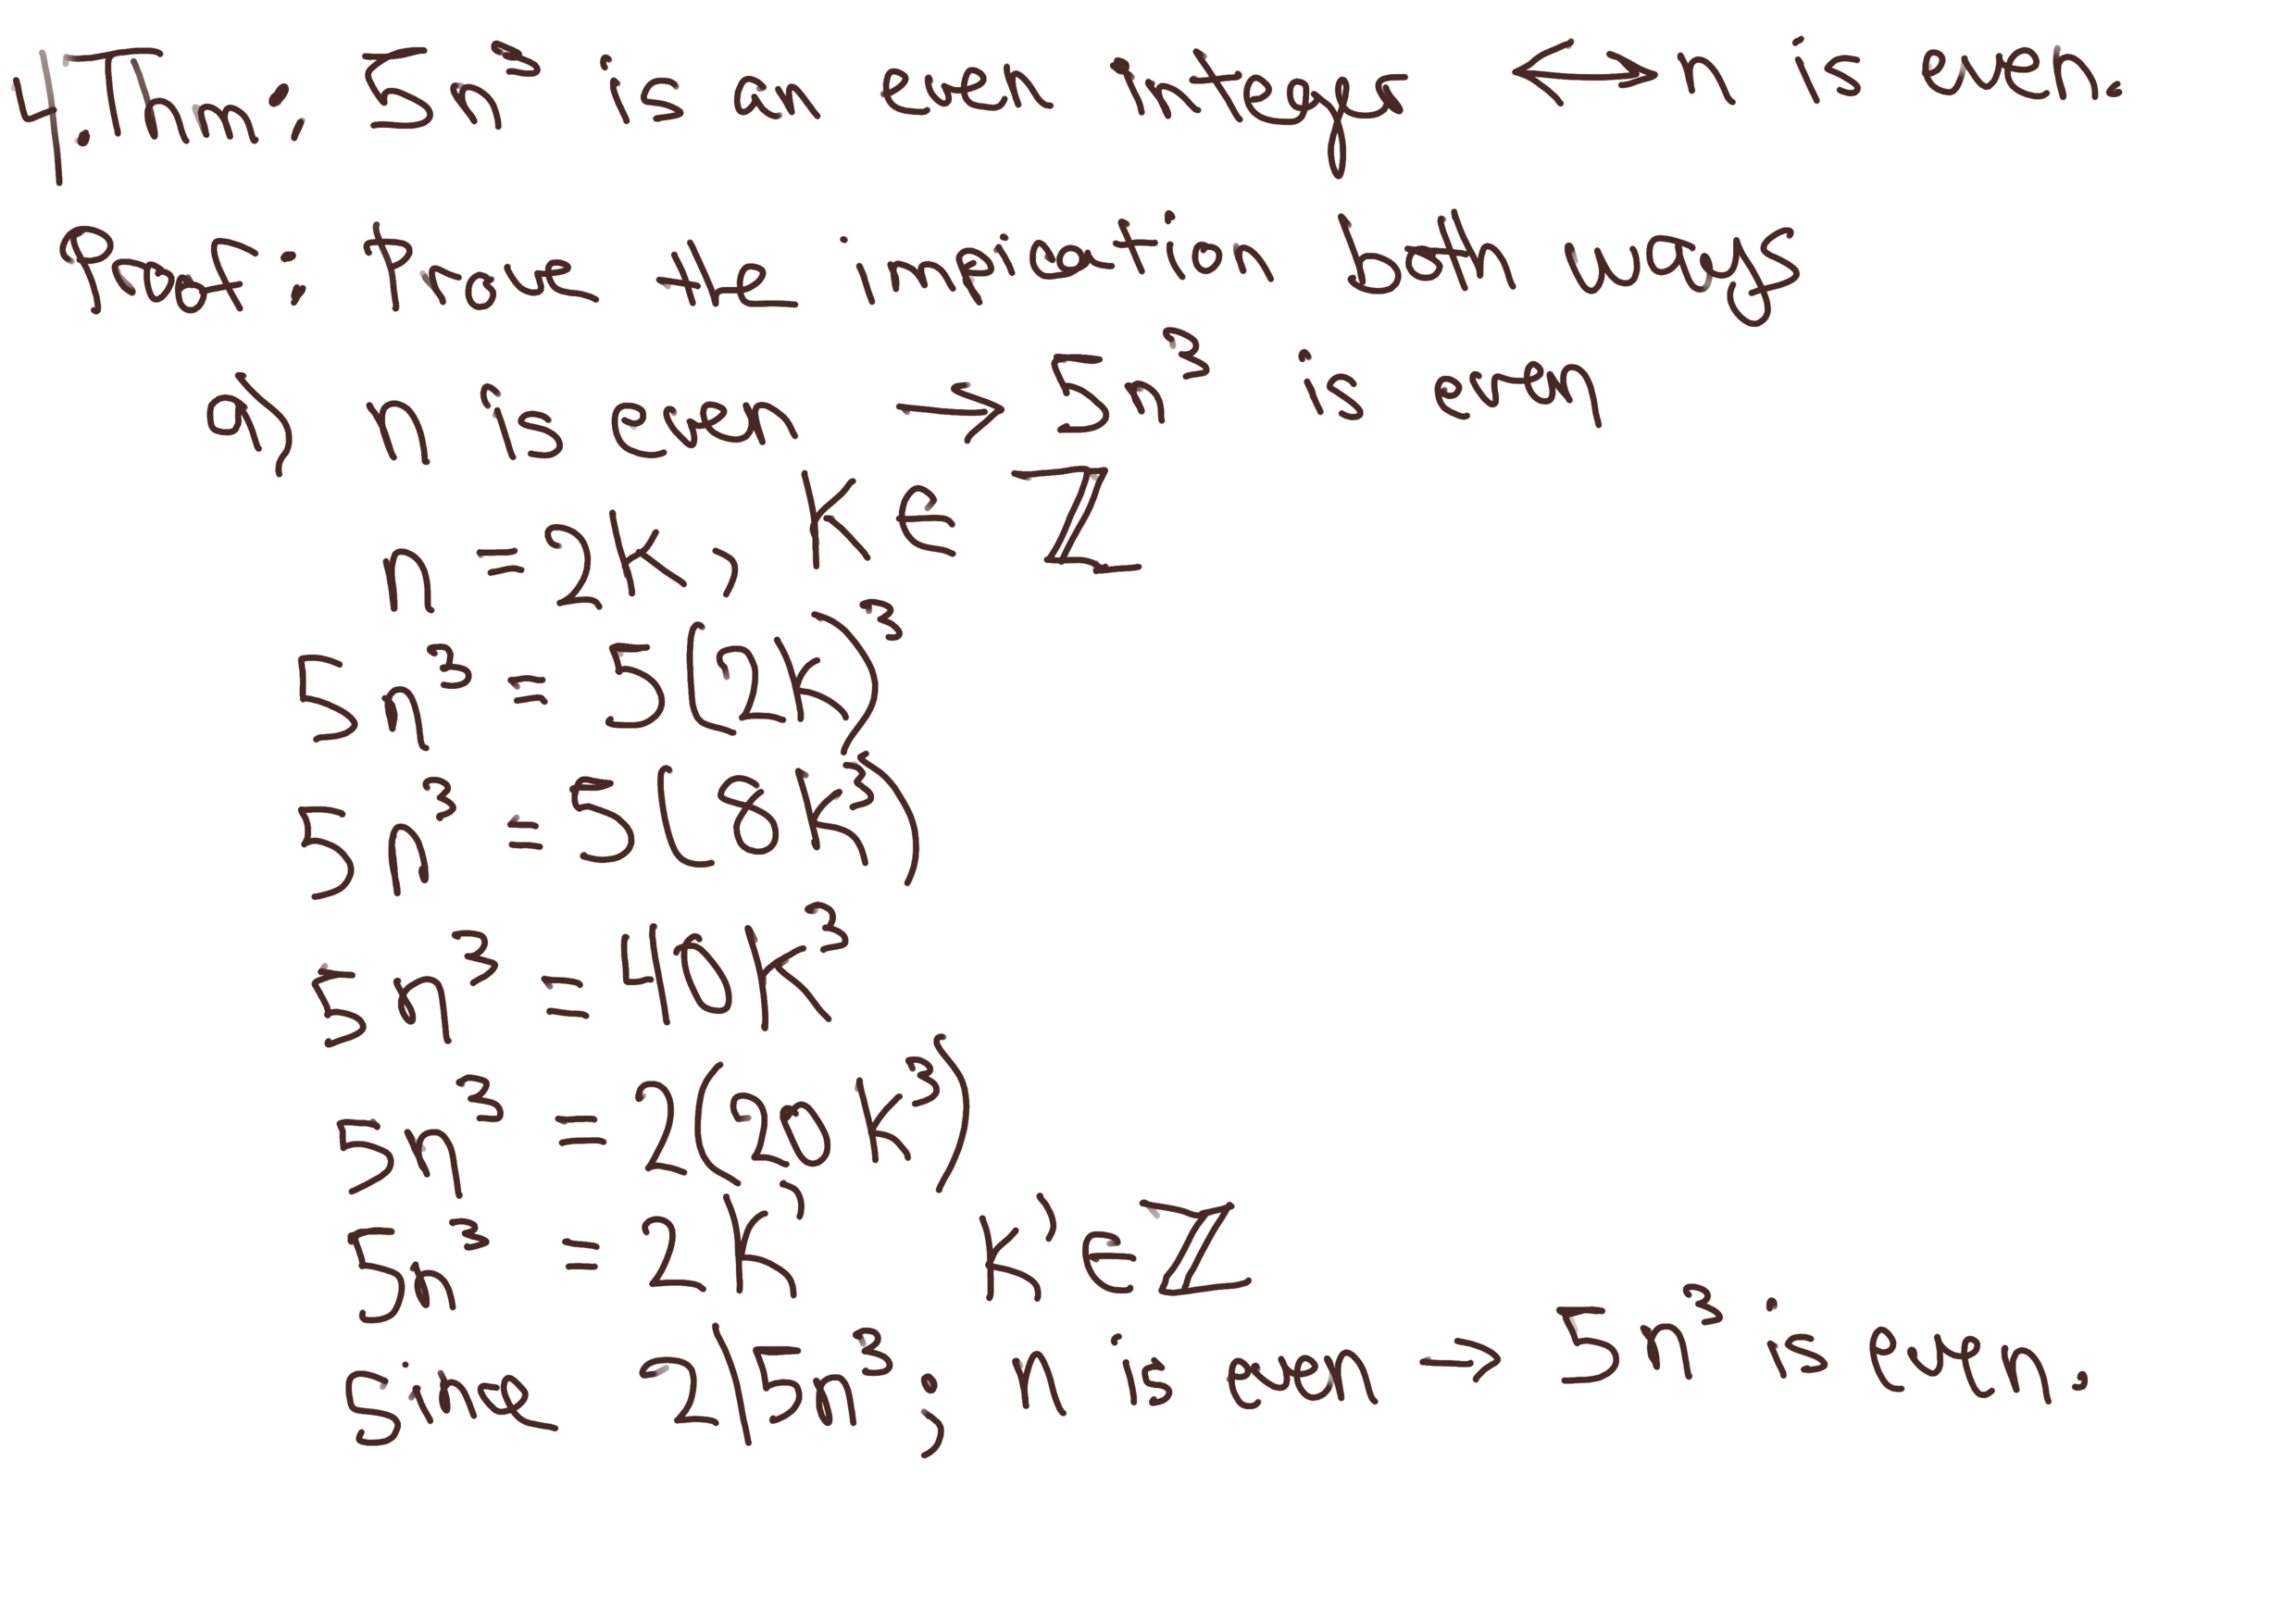 4. Thm: 5n³ is an even integer ⟷ n is even.
Proof: Prove the impication both ways
a) n is even → 5n³ is even
n = 2K, K ∈ ℤ
5n³ = 5(2K)³
5n³ = 5(8K³)
5n³ = 40K³
5n³ = 2(20K³)
5n³ = 2K' K' ∈ ℤ
Since 2|5n³; n is even → 5n³ is even.